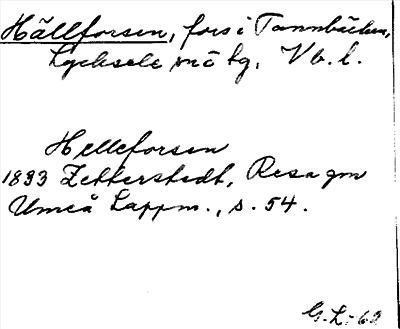 Hällforsen, fors i Tannbäcken,
Lycksele snö kg, Vb. l.
Helleforsen
1833 Zetterstedt, Resa gm
Umeå Lappm., s. 54.
G.L. 62